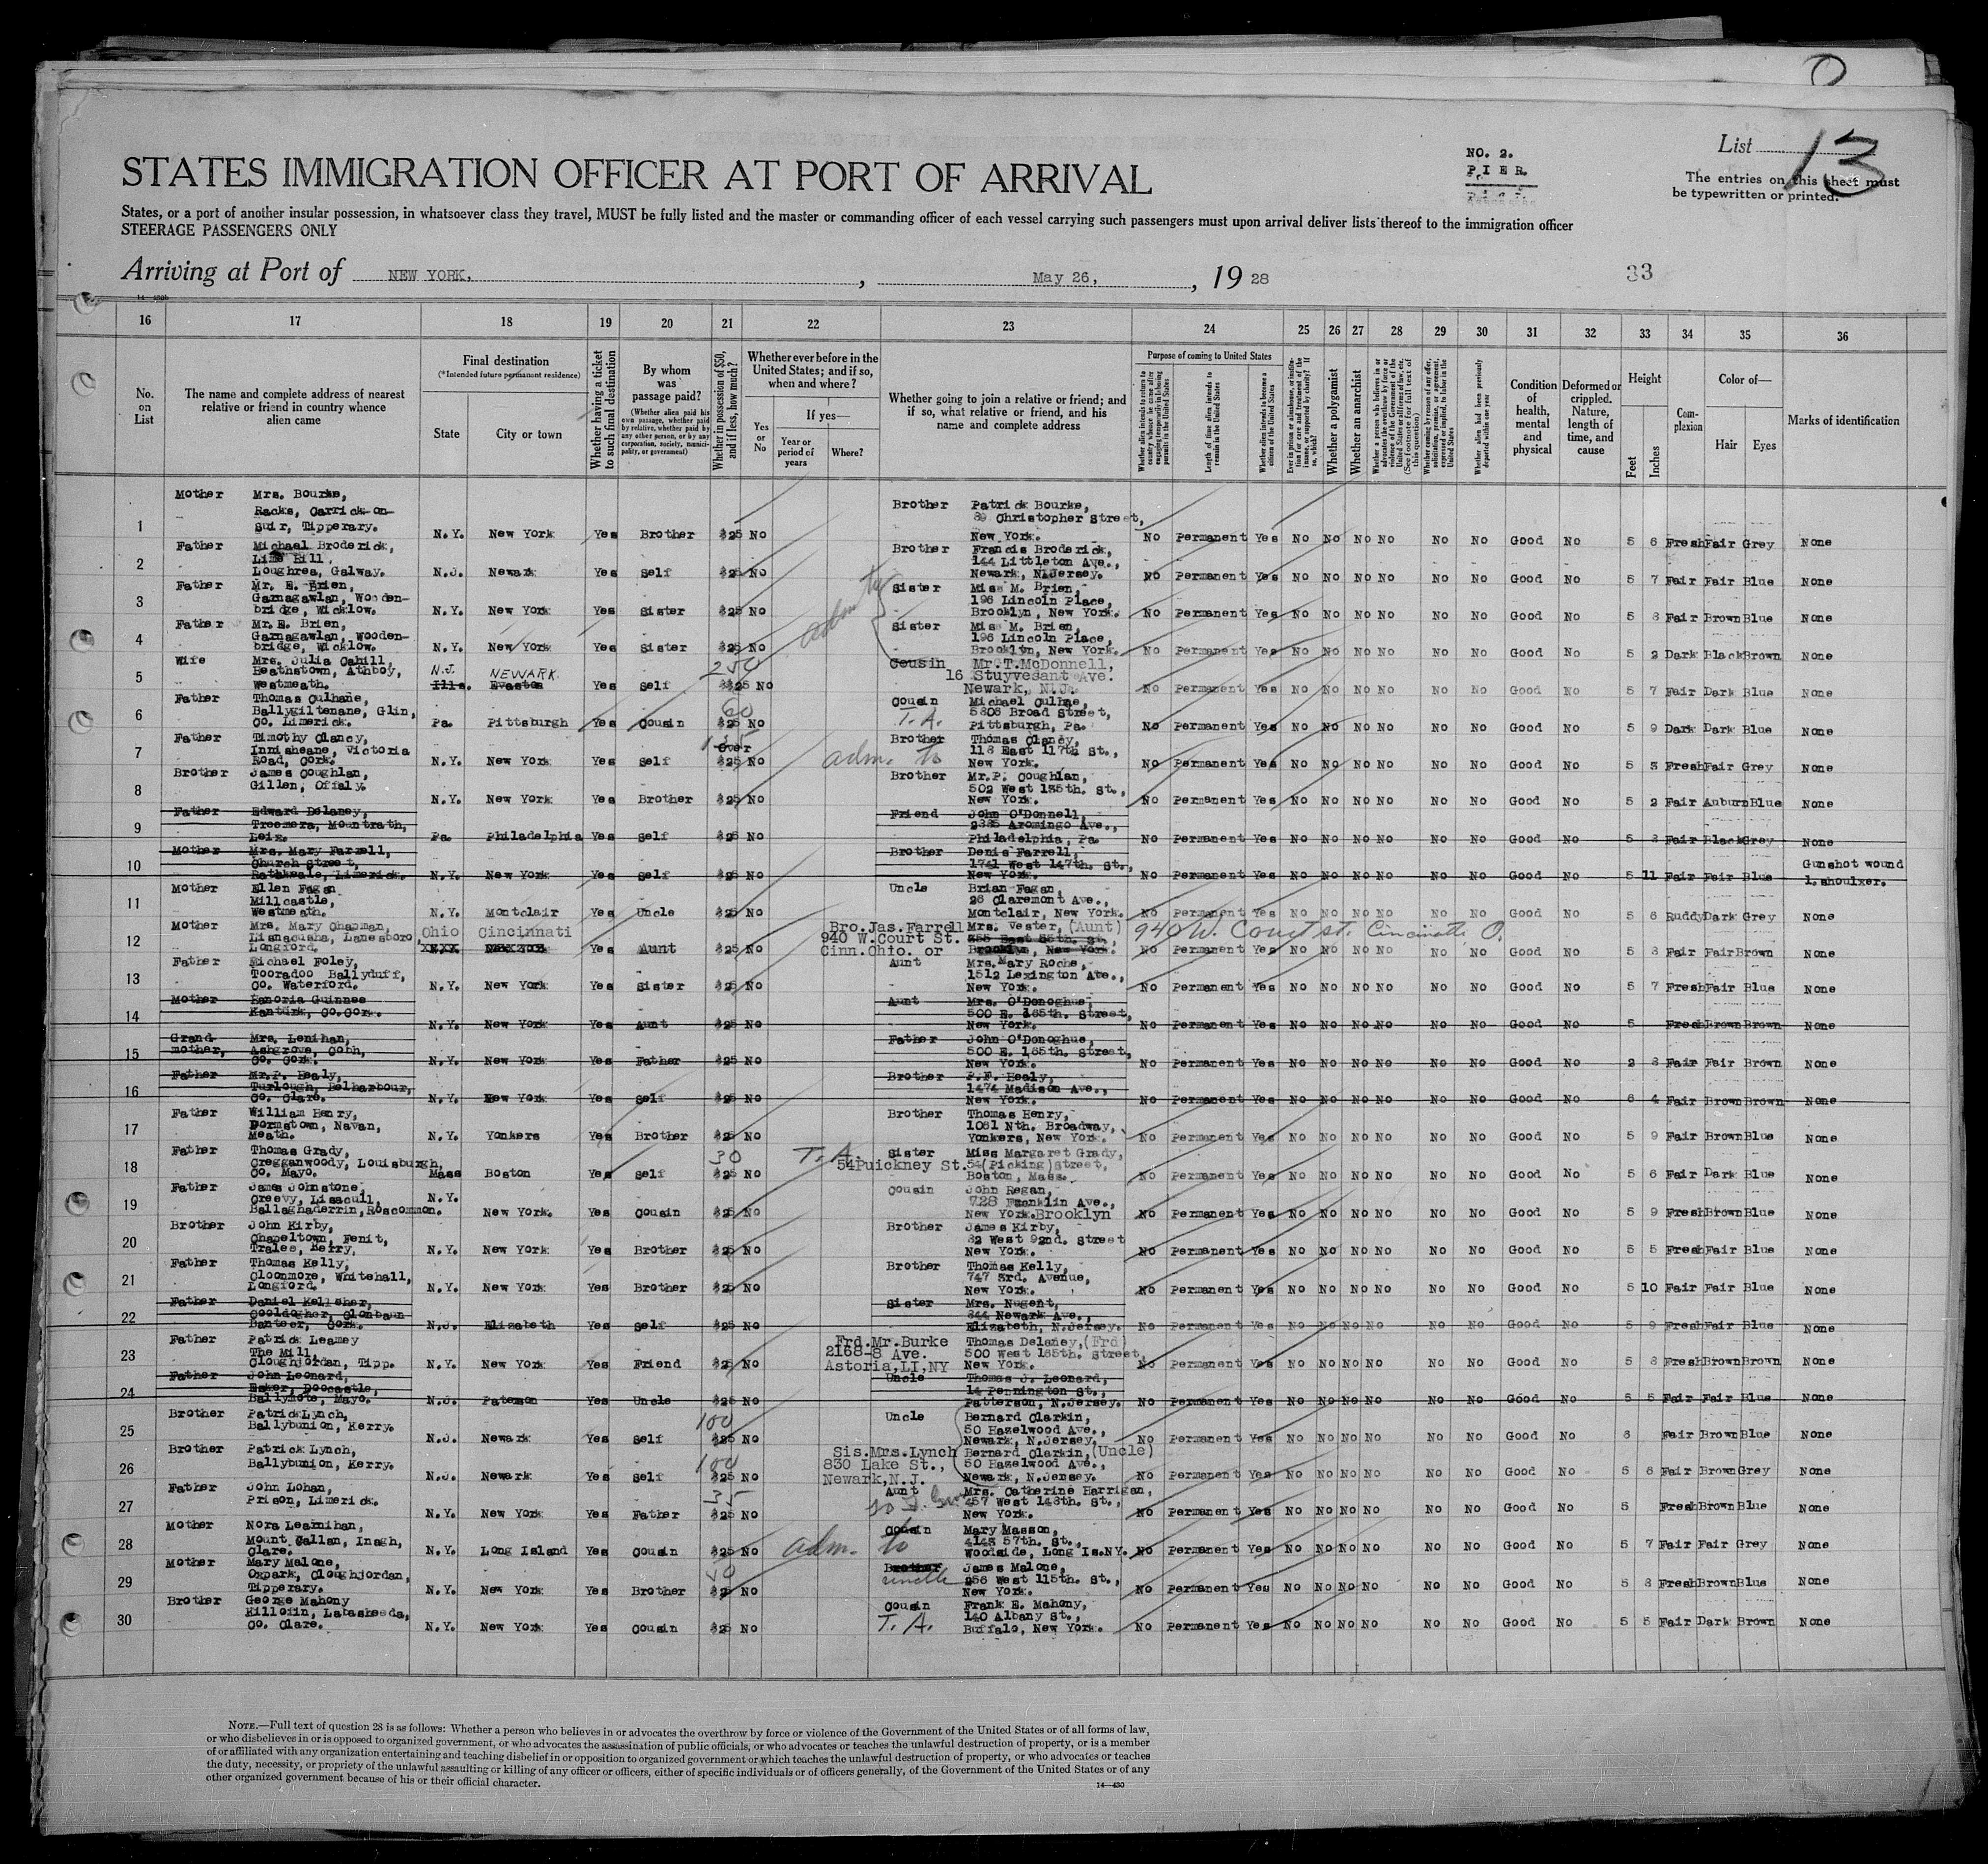 List 13
NO. 2.
PIER.
The entries on this sheet must
be typewritten or printed.
STATES IMMIGRATION OFFICER AT PORT OF ARRIVAL
States, or a port of another insular possession, in whatsoever class they travel, MUST be fully listed and the master or commanding officer of each vessel carrying such passengers must upon arrival deliver lists thereof to the immigration officer
STEERAGE PASSENGERS ONLY
Arriving at Port of NEW YORK, May 26, 1928
33
16 17 18 19 20 21 22 23 24 25 26 27 28 29 30 31 32 33 34 35 36
No. on List
The name and complete address of nearest relative or friend in country whence alien came
Final destination
(*Intended future permanent residence)
State City or town
Whether having a ticket to such final destination
By whom was passage paid?
(Whether alien paid his own passage, whether paid by relative, whether paid by any other person, or by any corporation, society, municipality, or government)
Whether in possession of $50, and if less, how much?
Whether ever before in the United States; and if so, when and where?
Yes or No
If yes—
Year or period of years
Where?
Whether going to join a relative or friend; and if so, what relative or friend, and his name and complete address
Purpose of coming to United States
Length of time alien intends to remain in the United States
Whether alien intends to become a citizen of the United States
Whether a polygamist
Whether an anarchist
Whether alien had been previously deported within one year
Condition of health, mental and physical
Deformed or crippled. Nature, length of time, and cause
Height
Feet Inches
Complexion
Color of—
Hair Eyes
Marks of identification
1 Mother Mrs. Bourke, Racks, Carrick-on-Suir, Tipperary. N.Y. New York Yes Brother $25 No Brother Patrick Bourke, 39 Christopher Street, New York. No Permanent Yes No No No No No No Good No 5 6 Fresh Fair Grey None
2 Father Michael Broderick, Lime Hill, Loughrea, Galway. N.J. Newark Yes Self $25 No Brother Francis Broderick, 144 Littleton Ave., Newark, N.Jersey. No Permanent Yes No No No No No No Good No 5 7 Fair Fair Blue None
3 Father Mr. E. Brien, Garnagawlan, Woodenbridge, Wicklow. N.Y. New York Yes Sister $25 No Sister Miss M. Brien, 196 Lincoln Place, Brooklyn, New York. No Permanent Yes No No No No No No Good No 5 8 Fair Brown Blue None
4 Father Mr. E. Brien, Garnagawlan, Woodenbridge, Wicklow. N.Y. New York Yes Sister $25 No Sister Miss M. Brien, 196 Lincoln Place, Brooklyn, New York. No Permanent Yes No No No No No No Good No 5 2 Dark Black Brown None
5 Wife Mrs. Julia Cahill, Heathstown, Athboy, Westmeath. N.J. NEWARK Ills. Evaston Yes Self 250 $25 No Cousin Mr. T. McDonnell, 16 Stuyvesant Ave. Newark, N.J. No Permanent Yes No No No No No No Good No 5 7 Fair Dark Blue None
6 Father Thomas Culhane, Ballygiltenane, Glin, Co. Limerick. Pa. Pittsburgh Yes Cousin 60 $25 No Cousin T.A. Michael Culhne, 5806 Broad Street, Pittsburgh, Pa. No Permanent Yes No No No No No No Good No 5 9 Dark Dark Blue None
7 Father Timothy Clancy, Innisheane, Victoria Road, Cork. N.Y. New York Yes Self 135 Over $25 No adm. to Brother Thomas Clancy, 118 East 117th St., New York. No Permanent Yes No No No No No No Good No 5 3 Fresh Fair Grey None
8 Brother James Coughlan, Gillen, Offaly. N.Y. New York Yes Brother $25 No Brother Mr.P. Coughlan, 502 West 135th. St., New York. No Permanent Yes No No No No No No Good No 5 2 Fair Auburn Blue None
9 Father Edward Delaney, Troomera, Mountrath, Leix. Pa. Philadelphia Yes Self $25 No Friend John O'Donnell, 2385 Aromingo Ave., Philadelphia, Pa. No Permanent Yes No No No No No No Good No 5 8 Fair Black Grey None
10 Mother Mrs. Mary Farrell, Church Street, Rathkeale, Limerick. N.Y. New York Yes Self $25 No Brother Denis Farrell, 1741 West 147th. St., New York. No Permanent Yes No No No No No No Good No 5 11 Fair Fair Blue Gunshot wound l. shoulxer.
11 Mother Ellen Fagan Millcastle, Westmeath. N.Y. Montclair Yes Uncle $25 No Uncle Brian Fagan, 26 Claremont Ave., Montclair, New York. No Permanent Yes No No No No No No Good No 5 6 Ruddy Dark Grey None
12 Mother Mrs. Mary Chapman, Lisnacusha, Lanesboro, Longford. Ohio Cincinnati Yes Aunt $25 No Bro.Jas.Farrell 940 W.Court St. Cinn.Ohio. or Mrs. Vester, (Aunt) 355 East 55th. St., Brooklyn, New York. 940 W. Court St. Cincinnatti, O. No Permanent Yes No No No No No No Good No 5 3 Fair Fair Brown None
13 Father Michael Foley, Tooradoo Ballyduff, Co. Waterford. N.Y. New York Yes Sister $25 No Aunt Mrs. Mary Roche, 1512 Lexington Ave., New York. No Permanent Yes No No No No No No Good No 5 7 Fresh Fair Blue None
14 Mother Hanoria Guinnee Kanturk, Co.Cork. N.Y. New York Yes Aunt $25 No Aunt Mrs. O'Donoghue, 500 E. 165th. Street, New York. No Permanent Yes No No No No No No Good No 5 Fresh Brown Brown None
15 Grand mother, Mrs. Lenihan, Ashgrove, Cobh, Co. Cork. N.Y. New York Yes Father $25 No Father John O'Donoghue, 500 E. 165th. Street, New York. No Permanent Yes No No No No No No Good No 2 8 Fair Fair Brown None
16 Father Mr.P. Healy, Turlough, Belharbour, Co. Clare. N.Y. New York Yes Self $25 No Brother P.F. Healy, 1474 Madison Ave., New York. No Permanent Yes No No No No No No Good No 6 4 Fair Brown Brown None
17 Father William Henry, Dormstown, Navan, Meath. N.Y. Yonkers Yes Brother $25 No Brother Thomas Henry, 1061 Nth. Broadway, Yonkers, New York. No Permanent Yes No No No No No No Good No 5 9 Fair Brown Blue None
18 Father Thomas Grady, Cregganwoody, Louisburgh, Co. Mayo. Mass Boston Yes Self 30 $25 No T.A. 54Puickney St. Sister Miss Margaret Grady, 54(Picking)street, Boston, Mass. No Permanent Yes No No No No No No Good No 5 6 Fair Dark Blue None
19 Father James Johnstone Creevy, Lisacull, Ballaghaderrin, Roscommon. N.Y. New York. Yes Cousin $25 No Cousin John Regan, 728 Franklin Ave., New York.Brooklyn No Permanent Yes No No No No No No Good No 5 9 Fresh Brown Blue None
20 Brother John Kirby, Chapeltown, Fenit, Tralee, Kerry, N.Y. New York Yes Brother $25 No Brother James Kirby, 32 West 92nd. Street New York. No Permanent Yes No No No No No No Good No 5 5 Fresh Fair Blue None
21 Father Thomas Kelly, Cloonmore, Whitehall, Longford. N.Y. New York Yes Brother $25 No Brother Thomas Kelly, 747 3rd. Avenue, New York. No Permanent Yes No No No No No No Good No 5 10 Fair Fair Blue None
22 Father Daniel Kelleher, Cooldogher, Glonbaun Banteer, Cork. N.J. Elizabeth Yes Self $25 No Sister Mrs. Nugent, 344 Newark Ave., Elizabeth, N.Jersey. No Permanent Yes No No No No No No Good No 5 9 Fresh Fair Blue None
23 Father Patrick Leamey The Mill, Cloughjordan, Tipp. N.Y. New York Yes Friend $25 No Frd.Mr.Burke 2168-8 Ave. Astoria,LI,NY Thomas Delaney,(Frd) 500 West 165th. Street, New York. No Permanent Yes No No No No No No Good No 5 8 Fresh Brown Brown None
24 Father John Leonard, Esker, Doocastle, Ballymote, Mayo. N.J. Paterson Yes Uncle $25 No Uncle Thomas J. Leonard, 14 Pennington St., Patterson, N.Jersey. No Permanent Yes No No No No No No Good No 5 5 Fair Fair Blue None
25 Brother PatrickLynch, Ballybunion, Kerry. N.J. Newark Yes Self 100 $25 No Uncle Bernard Clarkin, 50 Hazelwood Ave., Newark, N.Jersey. No Permanent Yes No No No No No No Good No 6 Fair Brown Blue None
26 Brother Patrick Lynch, Ballybunion, Kerry. N.J. Newark Yes Self 100 $25 No Sis.Mrs.Lynch 830 Lake St., Newark,N.J. Bernard Clarkin,(Uncle) 50 Hazelwood Ave., Newark, N.Jersey. No Permanent Yes No No No No No No Good No 5 6 Fair Brown Grey None
27 Father John Lohan, Prison, Limerick. N.Y. New York Yes Father 35 $25 No Aunt Mrs. Catherine Harrigan, 467 West 148th. St., New York. No Permanent Yes No No No No No No Good No 5 Fresh Brown Blue None
28 Mother Nora Learnihan, Mount Callan, Inagh, Clare. N.Y. Long Island Yes Cousin $25 No adm. to Cousin Mary Masson, 4143 57th. St., Woodside, Long Is.NY. No Permanent Yes No No No No No No Good No 5 7 Fair Fair Grey None
29 Mother Mary Malone, Oxpark, Cloughjordan, Tipperary. N.Y. New York Yes Brother 50 $25 No Brother uncle James Malone, 256 West 115th. St., New York. No Permanent Yes No No No No No No Good No 5 8 Fresh Brown Blue None
30 Brother George Mahony Killofin, Labasheeda, Co. Clare. N.Y. New York Yes Cousin $25 No Cousin T.A. Frank E. Mahony, 140 Albany St., Buffalo, New York. No Permanent Yes No No No No No No Good No 5 5 Fair Dark Brown None
NOTE.—Full text of question 28 is as follows: Whether a person who believes in or advocates the overthrow by force or violence of the Government of the United States or of all forms of law,
or who disbelieves in or is opposed to organized government, or who advocates the assassination of public officials, or who advocates or teaches the unlawful destruction of property, or is a member
of or affiliated with any organization entertaining and teaching disbelief in or opposition to organized government or which teaches the unlawful destruction of property, or who advocates or teaches
the duty, necessity, or propriety of the unlawful assaulting or killing of any officer or officers, either of specific individuals or of officers generally, of the Government of the United States or of any
other organized government because of his or their official character.
14—430